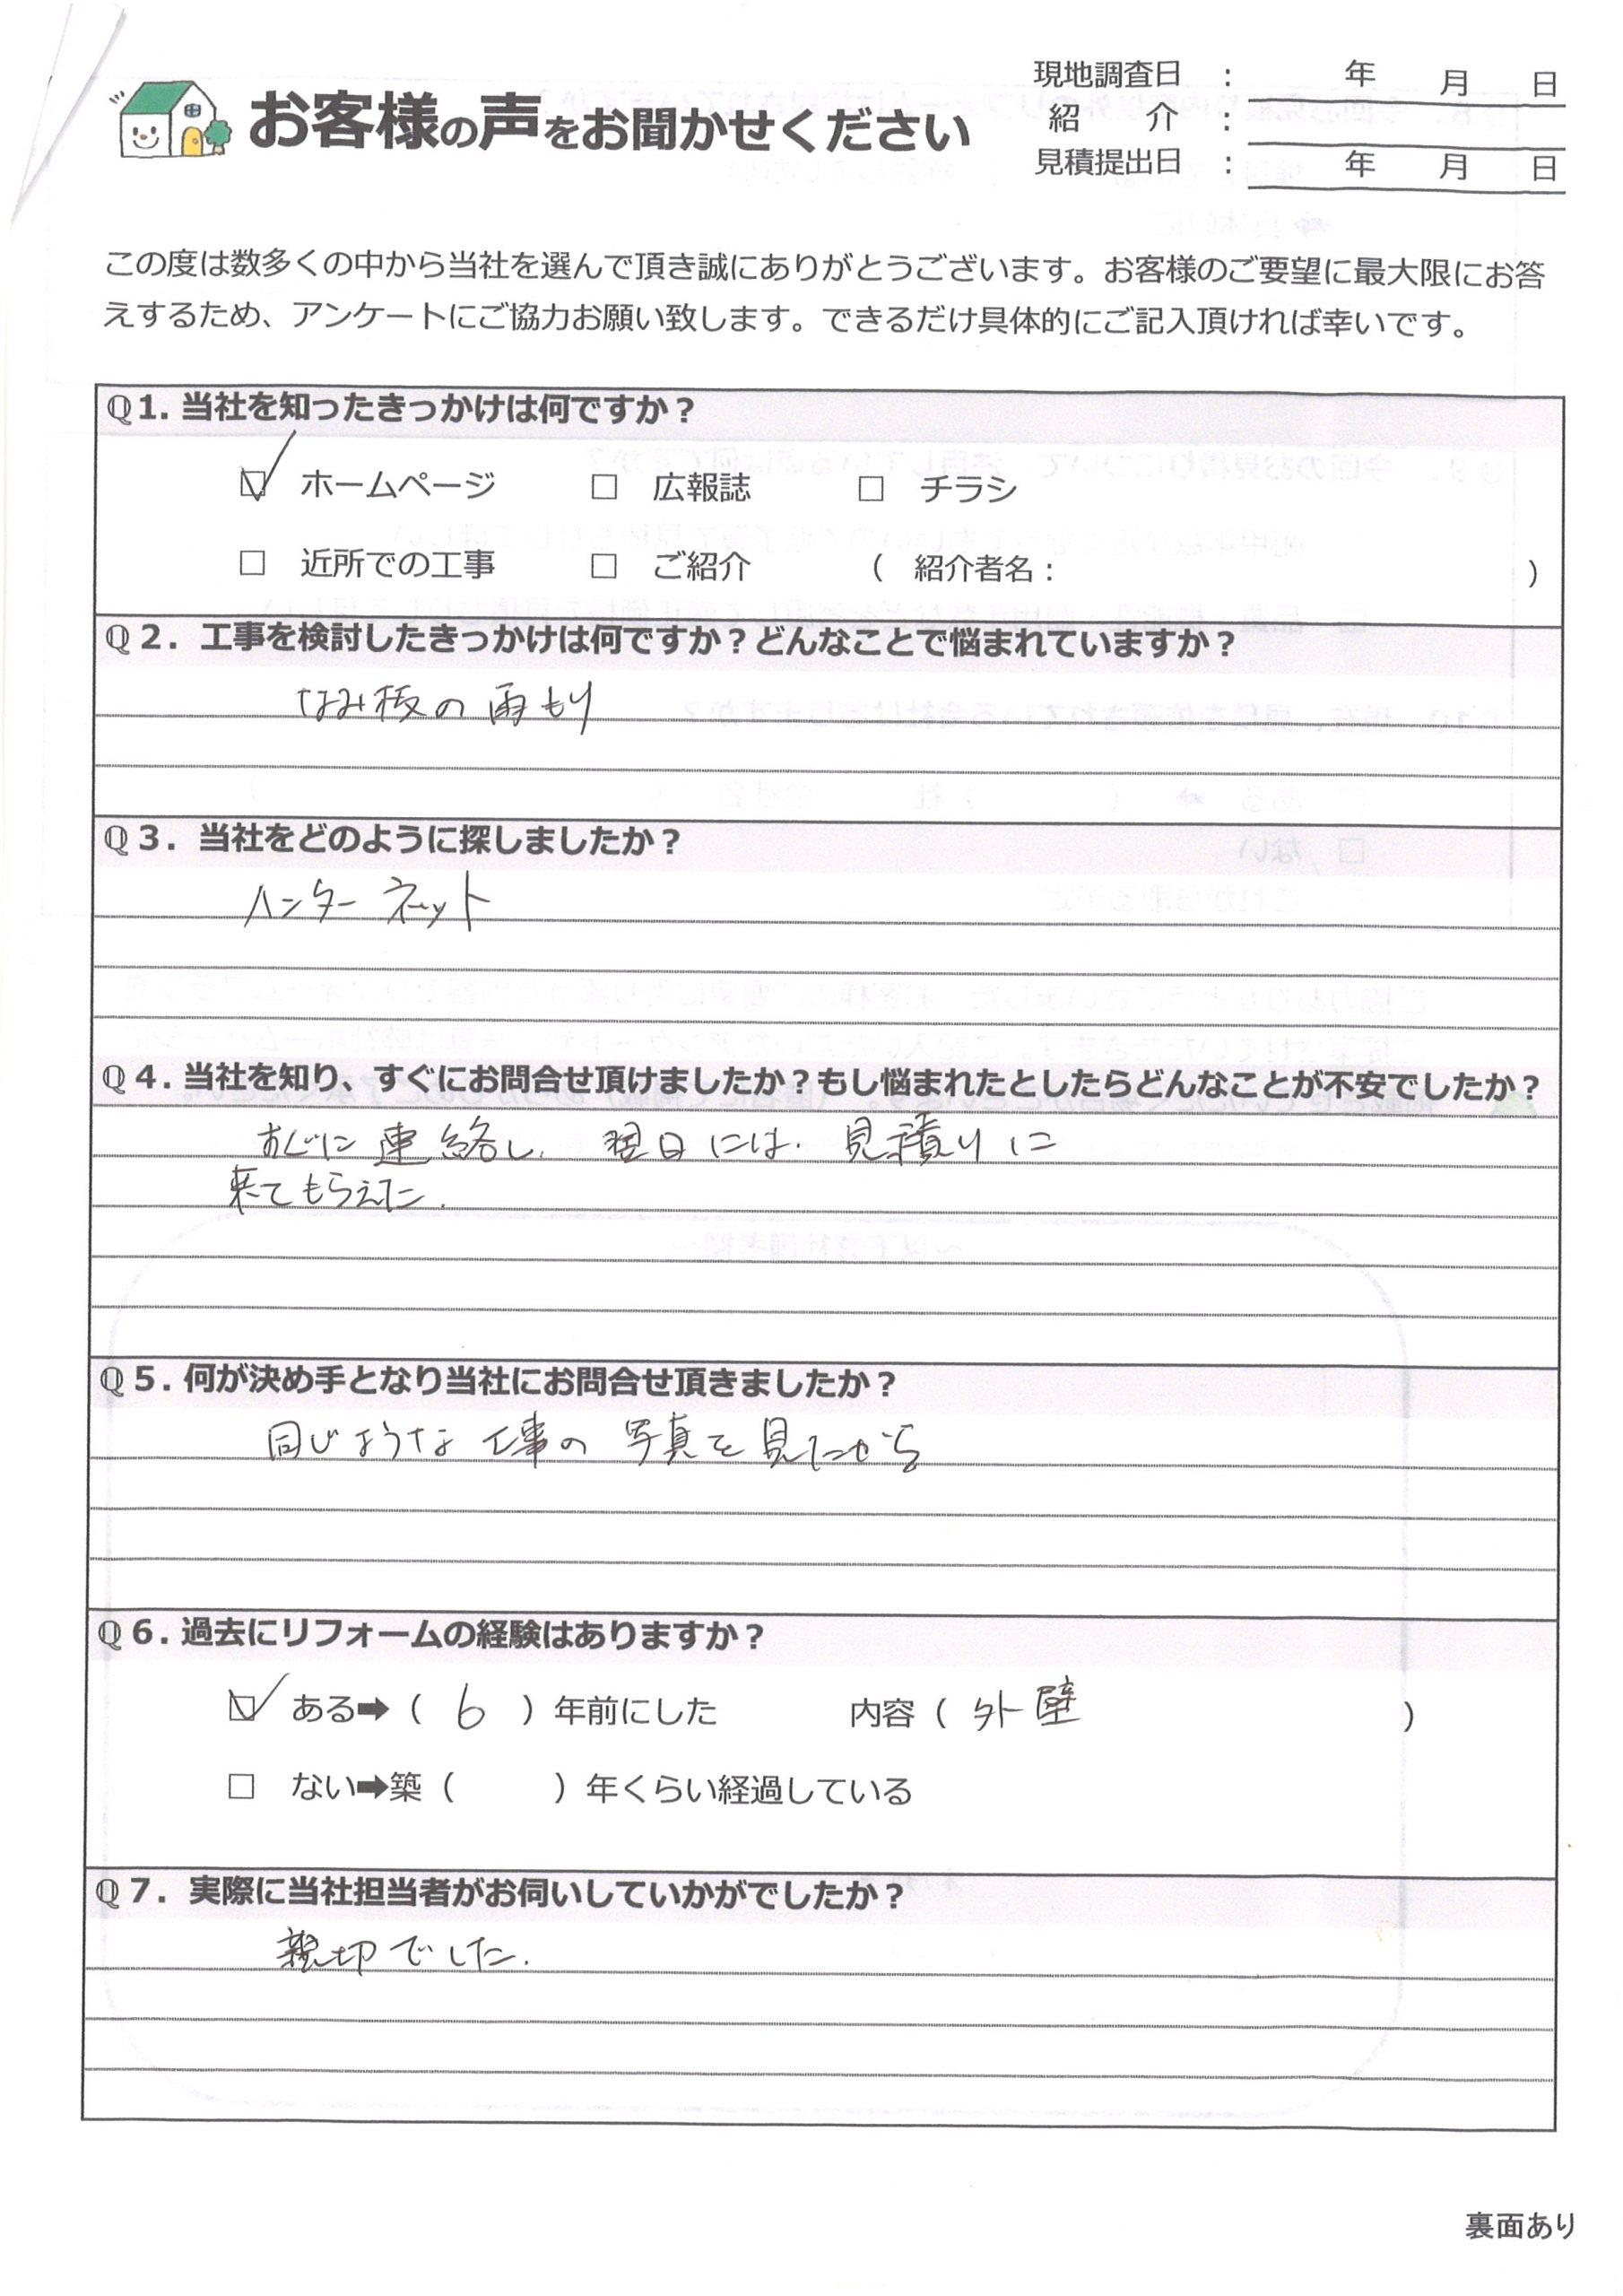 お客様の声をお聞かせください
現地調査日 : 年 月 日
紹 介 :
見積提出日 : 年 月 日
この度は数多くの中から当社を選んで頂き誠にありがとうございます。お客様のご要望に最大限にお答
えするため、アンケートにご協力お願い致します。できるだけ具体的にご記入頂ければ幸いです。
Q1. 当社を知ったきっかけは何ですか？
☑ ホームページ □ 広報誌 □ チラシ
□ 近所での工事 □ ご紹介 ( 紹介者名： )
Q2. 工事を検討したきっかけは何ですか？どんなことで悩まれていますか？
なみ板の雨もり
Q3. 当社をどのように探しましたか？
インターネット
Q4. 当社を知り、すぐにお問合せ頂けましたか？もし悩まれたとしたらどんなことが不安でしたか？
すぐに連絡し、翌日には、見積りに
来てもらえた.
Q5. 何が決め手となり当社にお問合せ頂きましたか？
同じような工事の写真を見たから
Q6. 過去にリフォームの経験はありますか？
☑ ある➡( 6 ) 年前にした 内容 ( 外壁 )
□ ない➡築 ( ) 年くらい経過している
Q7. 実際に当社担当者がお伺いしていかがでしたか？
親切でした.
裏面あり